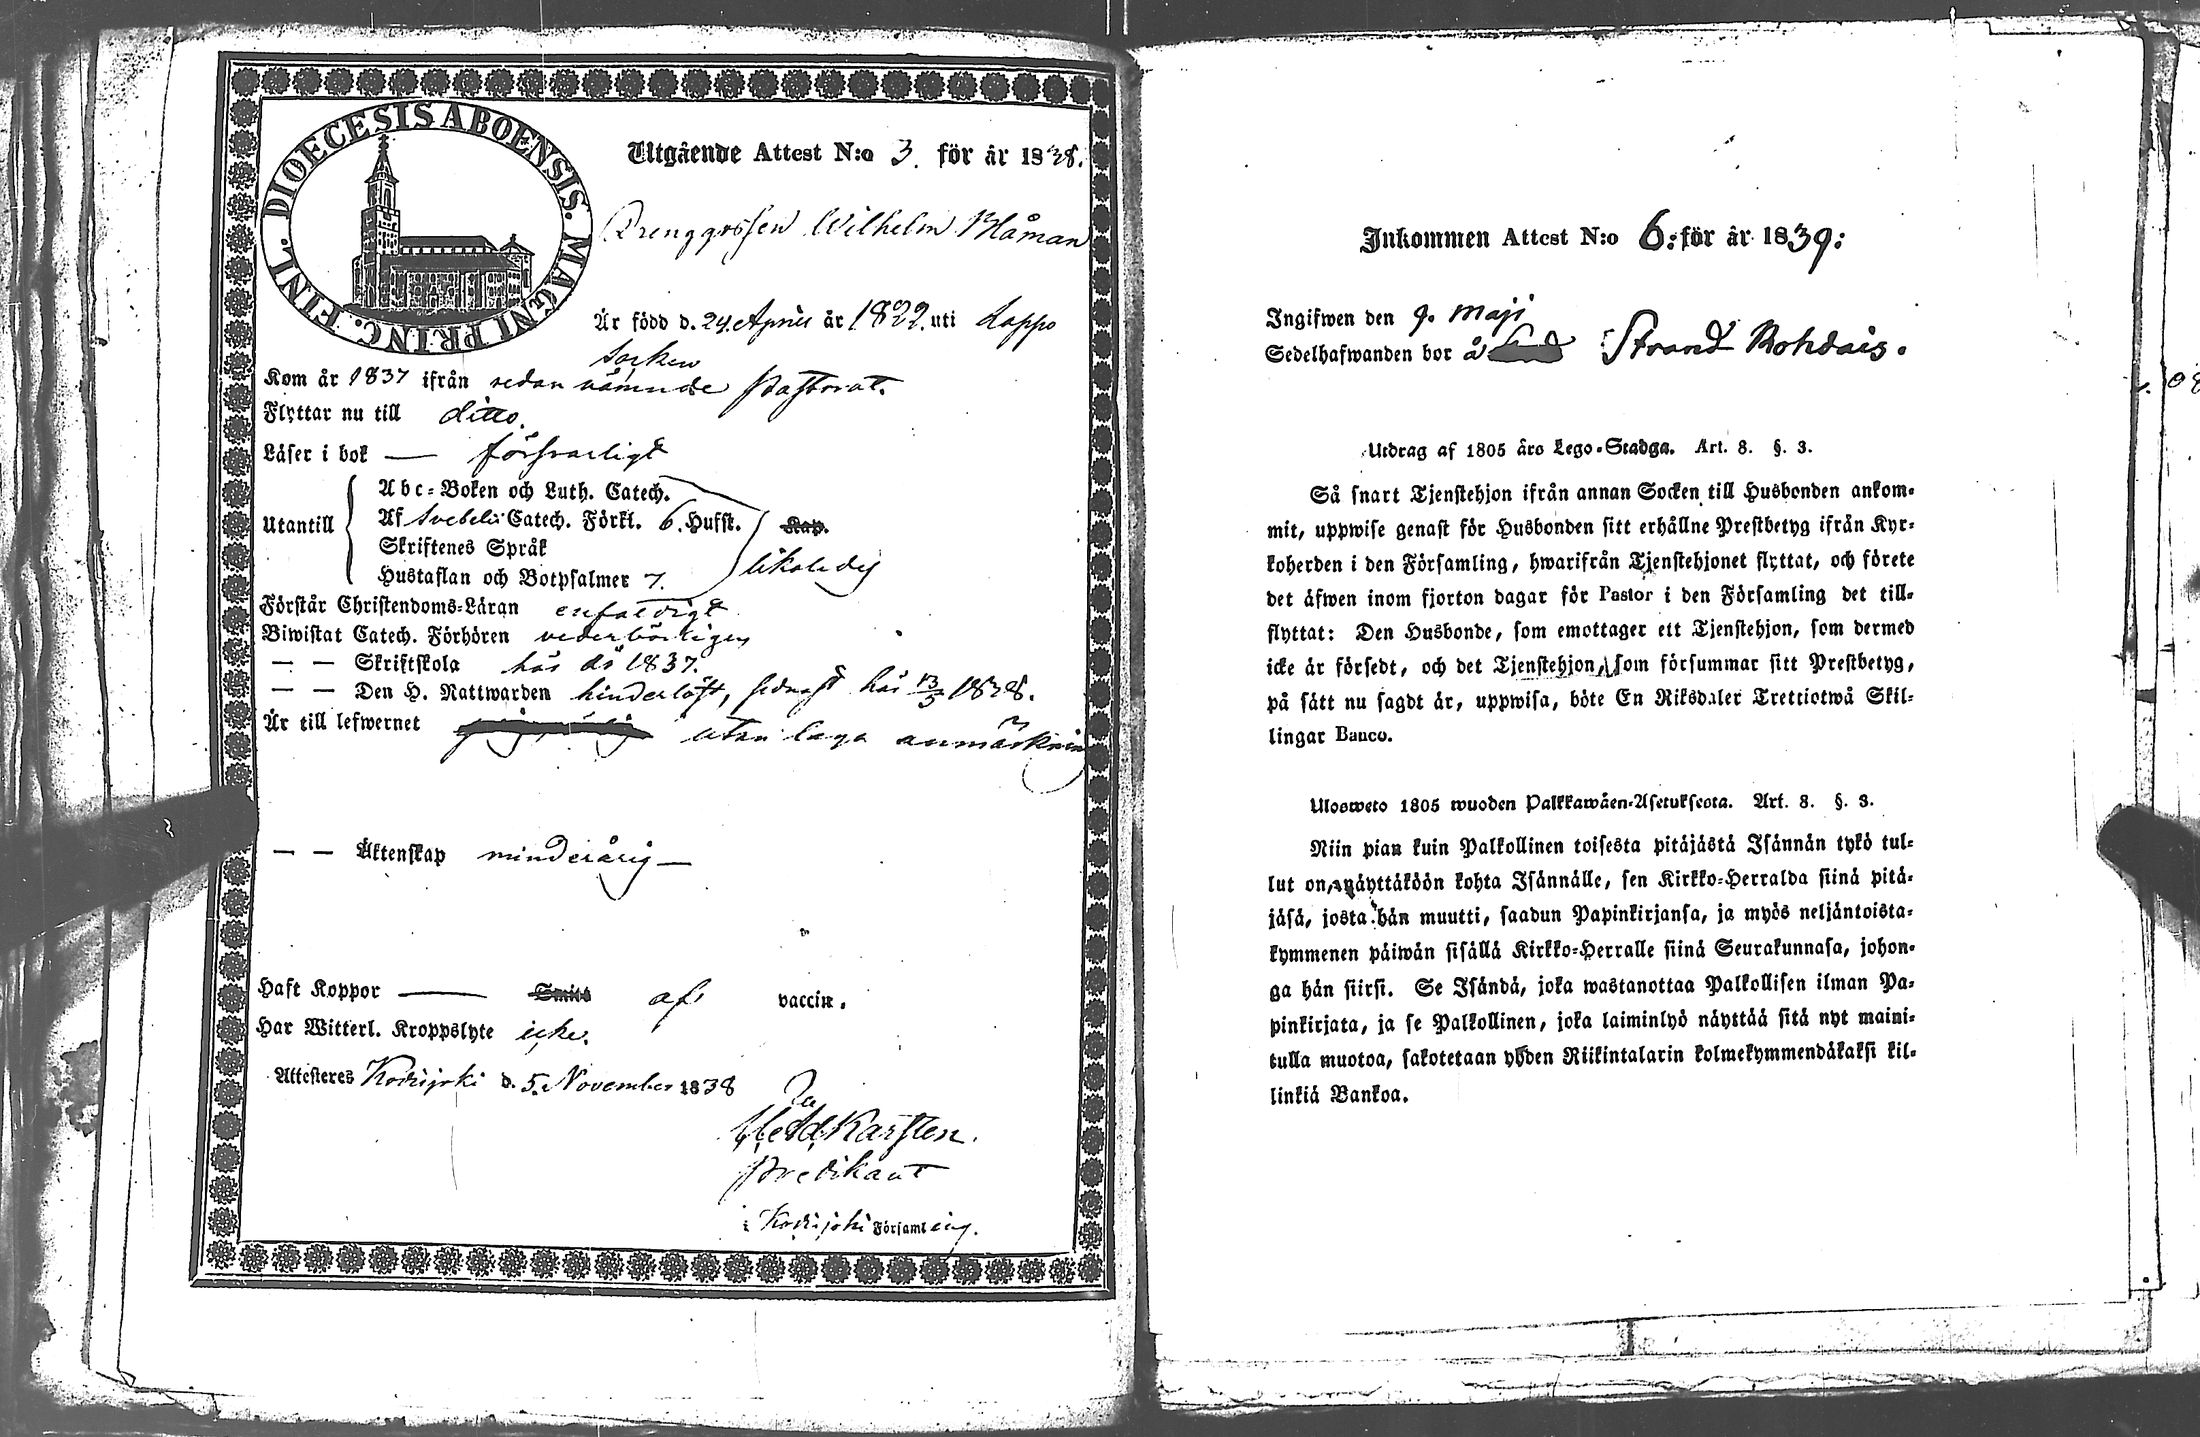 DIOECESIS ABOENSIS. MAGNI PRINC. FINL.
Utgående Attest N:o 3. för år 1838.
Drenggossen Wilhelm Blåman
Är född d. 24 April år 1822. uti Lappo
socken
Kom år 1837 ifrån sedan nämnde Pastorat.
Flyttar nu till ditto.
Läser i bok — försvarligt
Utantill
Abc-Boken och Luth. Catech.
Af Svebelii Catech. Förkl. 6. Hufst. Kap.
Skriftenes Språk
Hustaflan och Botpsalmer 7.
likaledes
Förstår Christendoms-Läran enfaldigt
Biwistat Catech. Förhören vederbörligen
— — Skriftskola här år 1837.
— — Den H. Nattwarden hinderlöst, sednast här 13/5 1838.
Är till lefwernet utan laga anmärkning
— — Äktenskap minderårig —
Haft Koppor — Smitt af vaccin.
Har Witterl. Kroppslyte icke.
Attesteres Kodisjoki d. 5. November 1838
Karsten.
Predikant
i Kodisjoki Församling.
Inkommen Attest N:o 6: för år 1839:
Ingifwen den 9. Maji
Sedelhafwanden bor å Strand Rohdais.
Utdrag af 1805 års Lego-Stadga. Art. 8. §. 3.
Så snart Tjenstehjon ifrån annan Socken till Husbonden ankom-
mit, uppwise genast för Husbonden sitt erhållne Prestbetyg ifrån Kyr-
koherden i den Församling, hwarifrån Tjenstehjonet flyttat, och förete
det äfwen inom fjorton dagar för Pastor i den Församling det till-
flyttat: Den Husbonde, som emottager ett Tjenstehjon, som dermed
icke är försedt, och det Tjenstehjon, som försummar sitt Prestbetyg,
på sätt nu sagdt är, uppwisa, böte En Riksdaler Trettiotwå Skil-
lingar Banco.
Ulosweto 1805 wuoden Palkkawäen-Asetuksesta. Art. 8. §. 3.
Niin pian kuin Palkollinen toisesta pitäjästä Isännän tykö tul-
lut on, näyttäköön kohta Isännälle, sen Kirkko-Herralda siinä pitä-
jäsä, josta hän muutti, saadun Papinkirjansa, ja myös neljäntoista-
kymmenen päiwän sisällä Kirkko-Herralle siinä Seurakunnasa, johon-
ga hän siirsi. Se Isändä, joka wastanottaa Palkollisen ilman Pa-
pinkirjata, ja se Palkollinen, joka laiminlyö näyttää sitä nyt maini-
tulla muotoa, sakotetaan yhden Riikintalarin kolmekymmendäkaksi kil-
linkiä Bankoa.